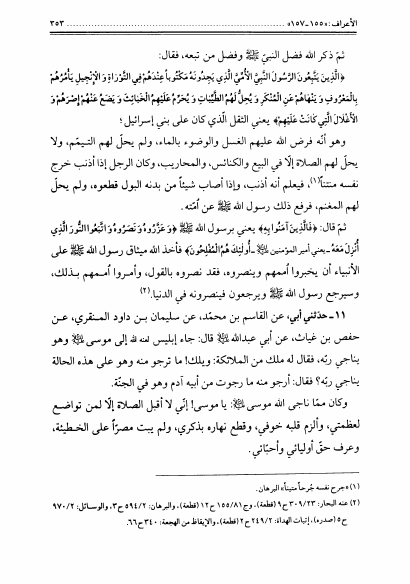 الأعراف: «١٥٥-١٥٧» ٣٥٣
ثمّ ذكر الله فضل النبيّ ﷺ وفضل من تبعه، فقال:
﴿الَّذِينَ يَتَّبِعُونَ الرَّسُولَ النَّبِيَّ الْأُمِّيَّ الَّذِي يَجِدُونَهُ مَكْتُوباً عِنْدَهُمْ فِي التَّوْرَاةِ وَ الْإِنْجِيلِ يَأْمُرُهُمْ
بِالْمَعْرُوفِ وَ يَنْهَاهُمْ عَنِ الْمُنْكَرِ وَ يُحِلُّ لَهُمُ الطَّيِّبَاتِ وَ يُحَرِّمُ عَلَيْهِمُ الْخَبَائِثَ وَ يَضَعُ عَنْهُمْ إِصْرَهُمْ وَ
الْأَغْلَالَ الَّتِي كَانَتْ عَلَيْهِمْ﴾ يعني الثقل الّذي كان على بني إسرائيل؛
وهو أنّه فرض الله عليهم الغسل والوضوء بالماء، ولم يحلّ لهم التيمّم، ولا
يحلّ لهم الصلاة إلّا في البيع والكنائس، والمحاريب، وكان الرجل إذا أذنب خرج
نفسه منتناً(١)، فيعلم أنه أذنب، وإذا أصاب شيئاً من بدنه البول قطعوه، ولم يحلّ
لهم المغنم، فرفع ذلك رسول الله ﷺ عن أمّته.
ثمّ قال: ﴿فَالَّذِينَ آمَنُوا بِهِ﴾ يعني برسول الله ﷺ ﴿وَ عَزَّرُوهُ وَ نَصَرُوهُ وَ اتَّبَعُوا النُّورَ الَّذِي
أُنْزِلَ مَعَهُ -يعني أمير المؤمنين ﷺ- أُولَئِكَ هُمُ الْمُفْلِحُونَ﴾ فأخذ الله ميثاق رسول الله ﷺ على
الأنبياء أن يخبروا أممهم وينصروه، فقد نصروه بالقول، وأمروا أممهم بذلك،
وسيرجع رسول الله ﷺ ويرجعون فينصرونه في الدنيا.(٢)
١١- حدّثني أبي، عن القاسم بن محمّد، عن سليمان بن داود المنقري، عن
حفص بن غياث، عن أبي عبدالله ﷺ قال: جاء إبليس لعنه الله إلى موسى ﷺ وهو
يناجي ربّه، فقال له ملك من الملائكة: ويلك! ما ترجو منه وهو على هذه الحالة
يناجي ربّه؟ فقال: أرجو منه ما رجوت من أبيه آدم وهو في الجنّة.
وكان ممّا ناجى الله موسى ﷺ: يا موسى! إنّي لا أقبل الصلاة إلّا لمن تواضع
لعظمتي، وألزم قلبه خوفي، وقطع نهاره بذكري، ولم يبت مصرّاً على الخطيئة،
وعرف حقّ أوليائي وأحبّائي.
(١) «جرح نفسه جُرحاً متيناً» البرهان.
(٢) عنه البحار: ٣٠٩/٢٣ ح٩ (قطعة)، وج١٥٥/٨١ ح١٢ (قطعة)، والبرهان: ٥٩٤/٢ ح٣، والوسائل: ٩٧٠/٢
ح٥ (صدره)، إثبات الهداة: ٢٤٩/٢ ح٢ (قطعة)، والإيقاظ من الهجعة: ٣٤٠ ح٦٦.